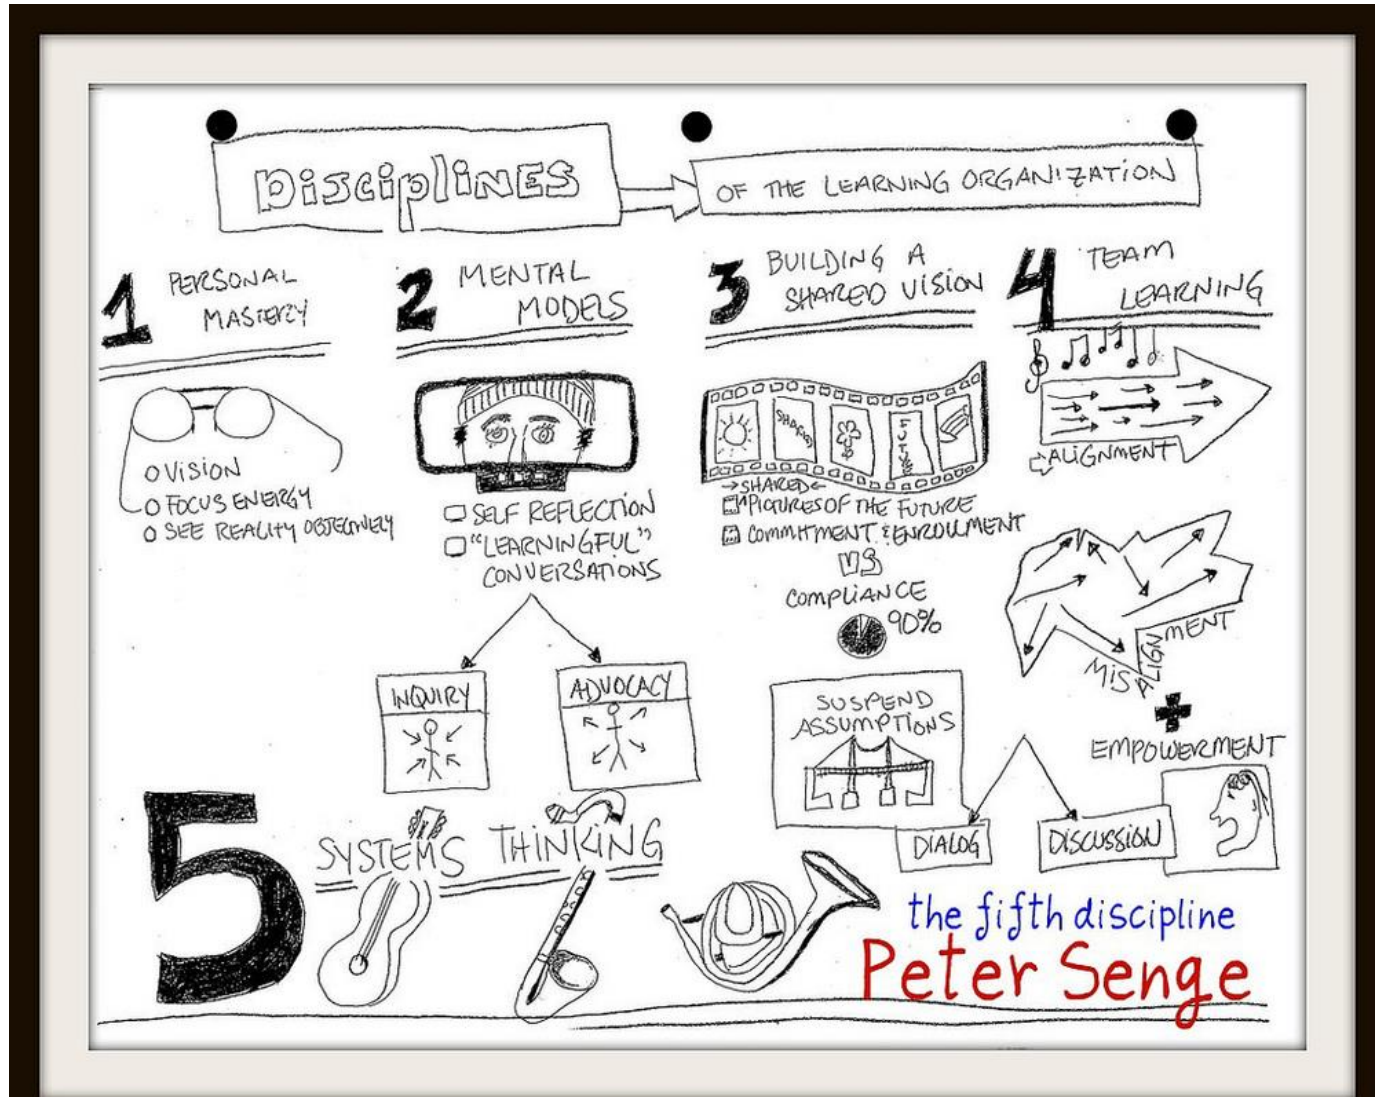 DisciplINES
OF THE LEARNING ORGANIZATION
1 PERSONAL
MASTERY
O VISION
O FOCUS ENERGY
O SEE REALITY OBJECTIVELY
2 MENTAL
MODELS
SELF REFLECTION
"LEARNINGFUL"
CONVERSATIONS
INQUIRY
ADVOCACY
3 BUILDING A
SHARED VISION
SHARED
FUTURE
SHARED
PICTURES OF THE FUTURE
COMMITMENT & ENROLLMENT
VS
COMPLIANCE
90%
4 TEAM
LEARNING
ALIGNMENT
MISALIGNMENT
+
EMPOWERMENT
SUSPEND
ASSUMPTIONS
DIALOG
DISCUSSION
5 SYSTEMS THINKING
the fifth discipline
Peter Senge